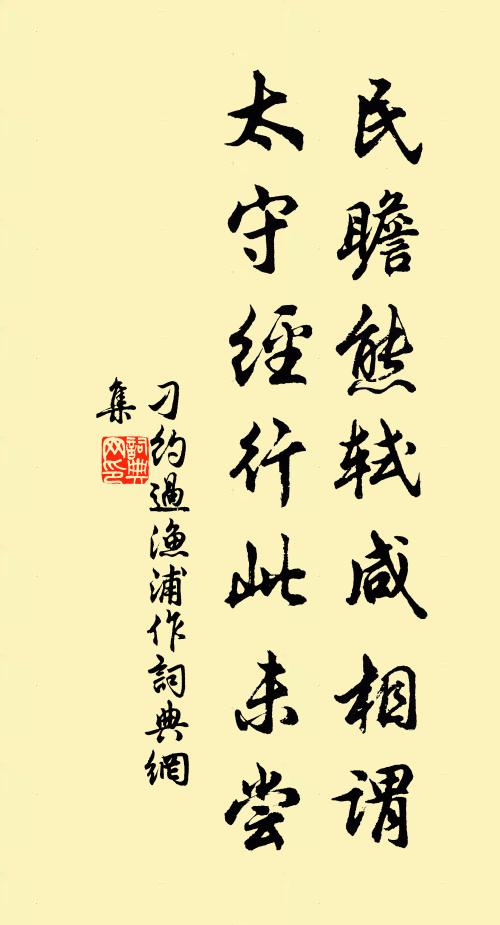 民瞻熊轼咸相謂
太守經行此未尝
刁約過漁浦作詞典網
集
詞典網印